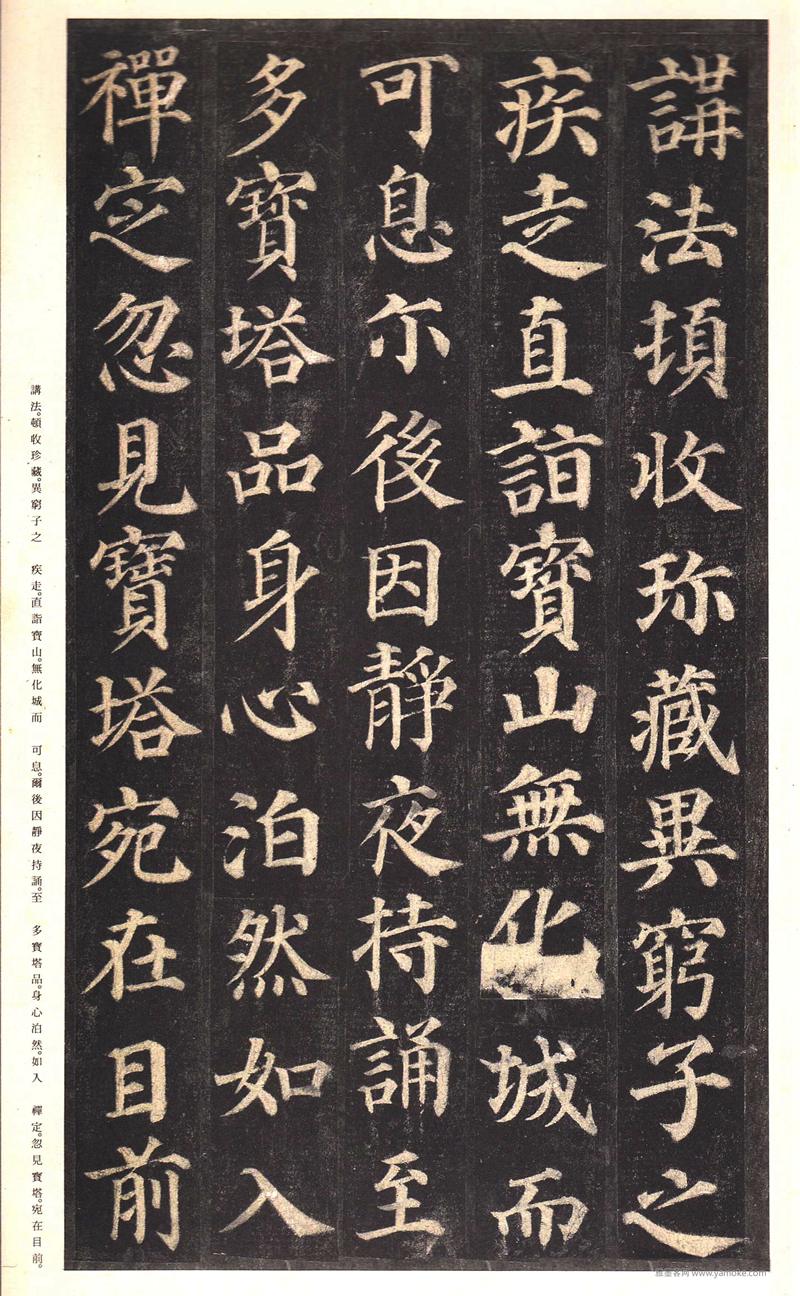 講法頓收珎藏異窮子之
疾走直詣寶山無化城而
可息尓後因靜夜持誦至
多寶塔品身心泊然如入
禪定忽見寶塔宛在目前
講法。頓收珍藏。異窮子之　疾走。直詣寶山。無化城而　可息。爾後因靜夜持誦。至　多寶塔品。身心泊然。如入　禪定。忽見寶塔。宛在目前。
雅墨客网 www.yamoke.com